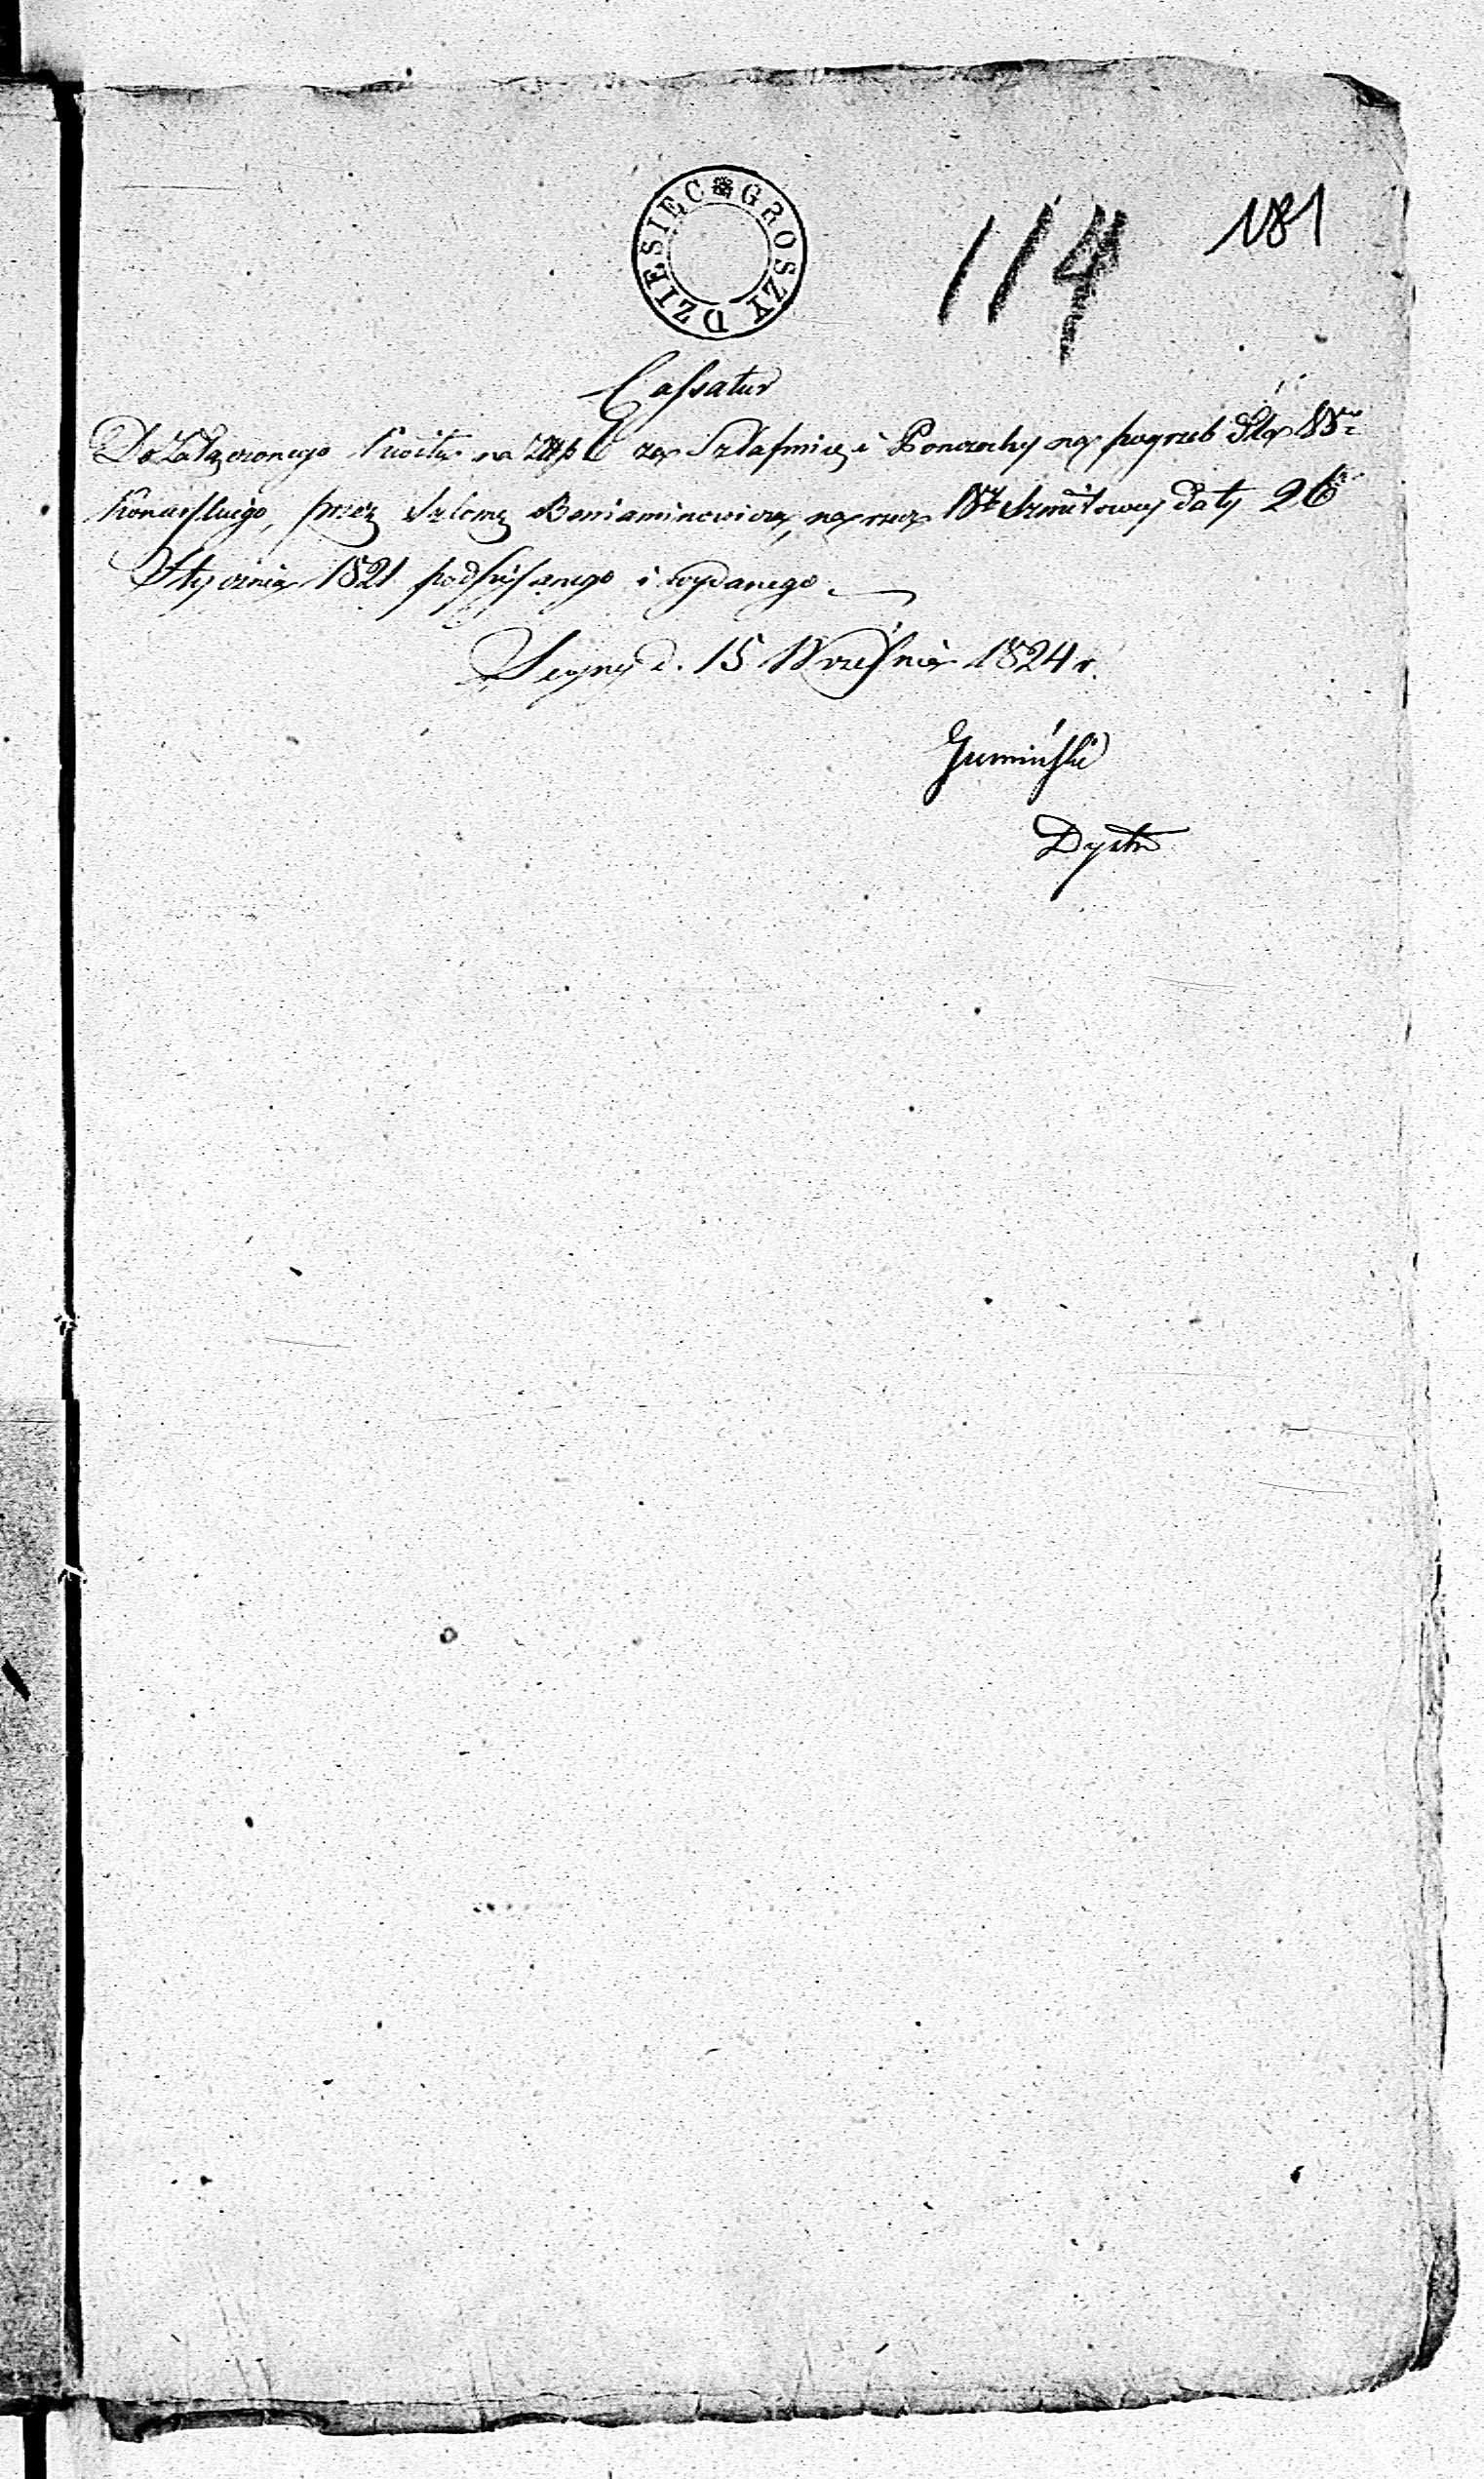 DZIESIĘC GROSZY
114 181
Cassatur
Do Załączonego Kwitu na Złp 6 za Szlafmicę i Ponczochy na pogrzeb dla
Konarskiego, przez Szlomę Beniaminowicza, na rzecz Szmitowey daty 26
Stycznia 1821 podpisanego i wydanego.
Seyny d. 15 Września 1824 r.
Gumiński
Dystr